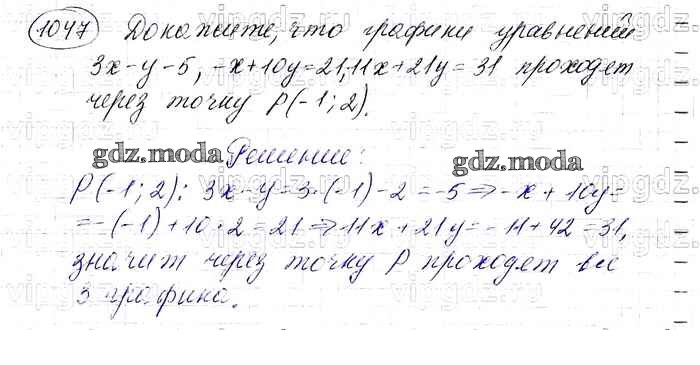 1047 Докажите, что графики уравнений
3x-y-5, -x+10y=21, 11x+21y=31 проходят
через точку P(-1; 2).
gdz.moda Решение: gdz.moda
P(-1; 2): 3x-y=3·(-1)-2=-5⇒-x+10y=
=-(-1)+10·2=21⇒11x+21y=-11+42=31,
значит через точку P проходят все
3 графика.